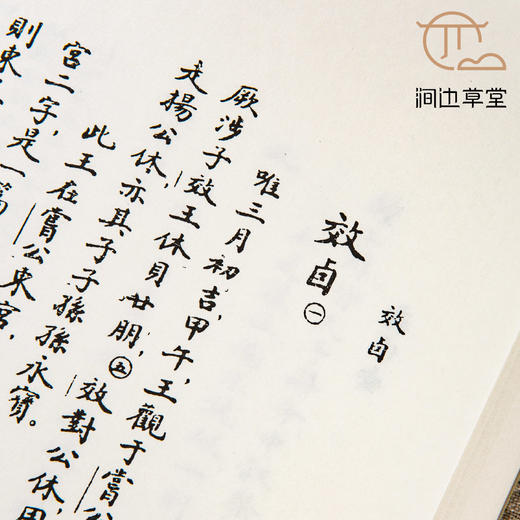 涧边草堂
效卣
效卣㊀
唯三月初吉,甲午,王觀于嘗公
厥涉子效王休貝廿朋,㊄效對公休,用
走揚公休,亦其子子孫孫永寶。
此王在嘗公東宮,
宮二字,是一篇
則東